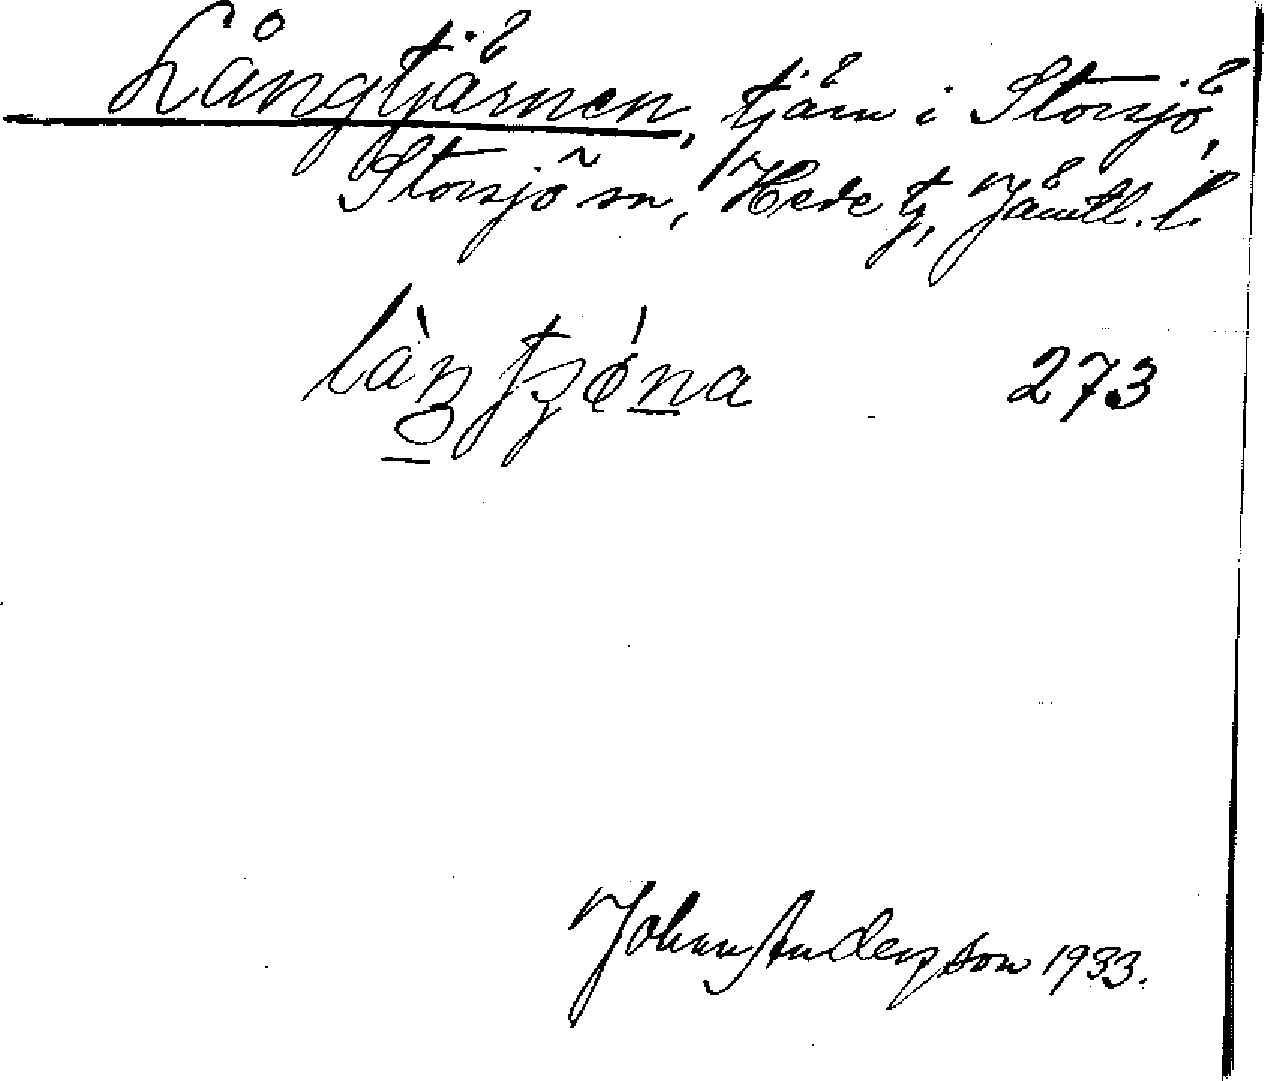 Långtjärnen, tjärn i Storsjö,
Storsjö sn, Hede tg, Jämtl. l.
273
Johan Anderzson 1933.